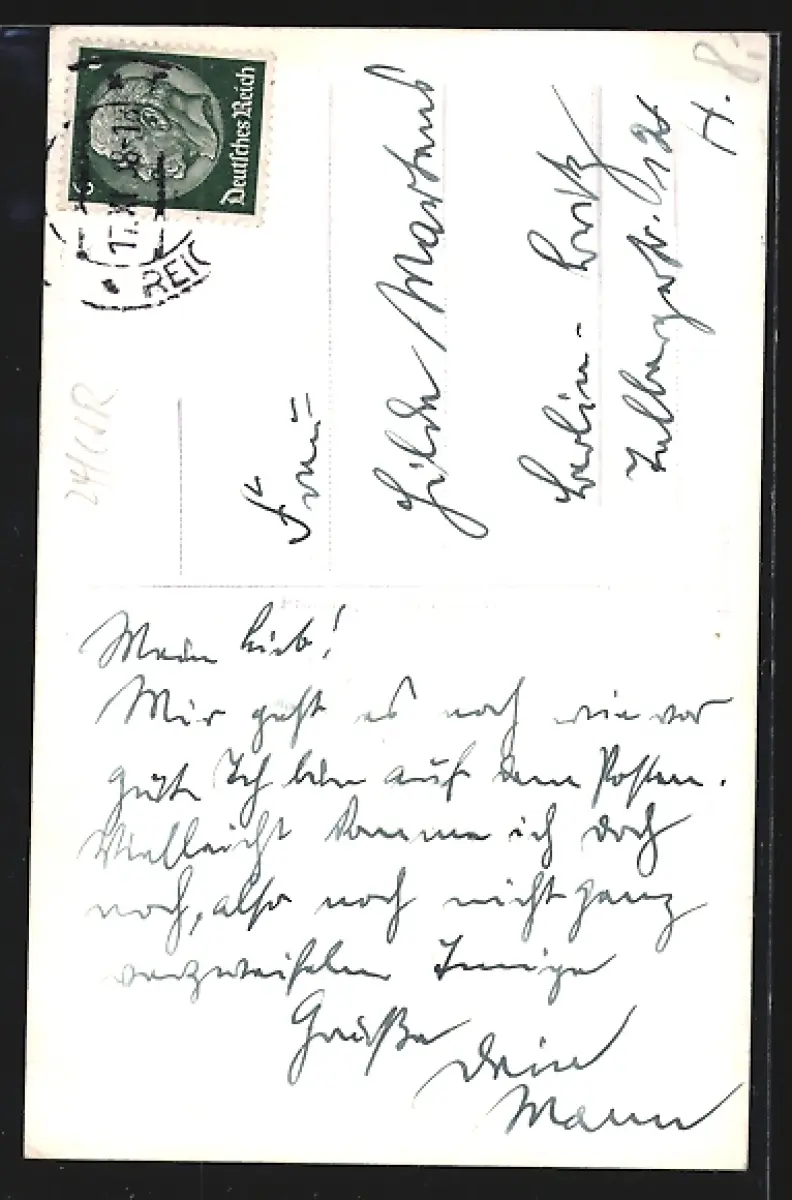 Deutsches Reich
6
17.XI.38-1
REIC
Frau
Hilde Martens
Berlin-Britz
H. 8.
Mein Lieb!
Mir geht es nach wie vor
gut. Ich bin auf dem Posten.
Vielleicht komme ich doch
noch, also noch nicht ganz
verzweifeln Innige
Grüße
Dein
Mann